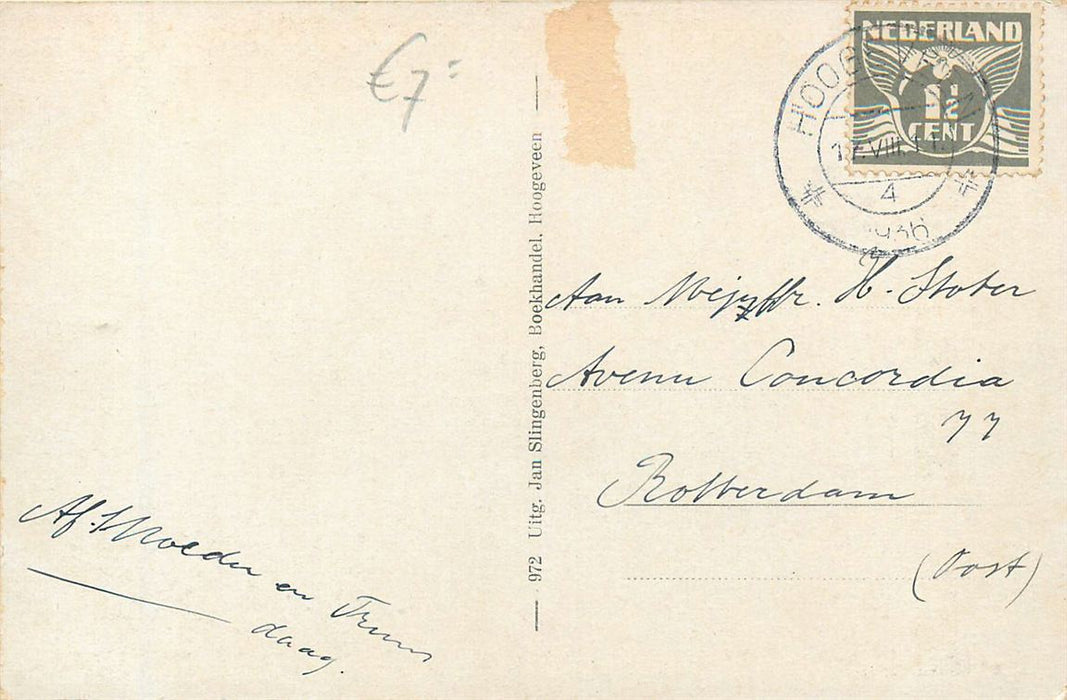 €7:
NEDERLAND
1½
CENT
HOOGEVEEN
17.VIII.
4
1936
Aan Mejuffr. H. Stoter
Avenu Concordia
77
Rotterdam
(Oost)
972 Uitg. Jan Slingenberg, Boekhandel, Hoogeveen
Af. Moeder en Truus
daag.